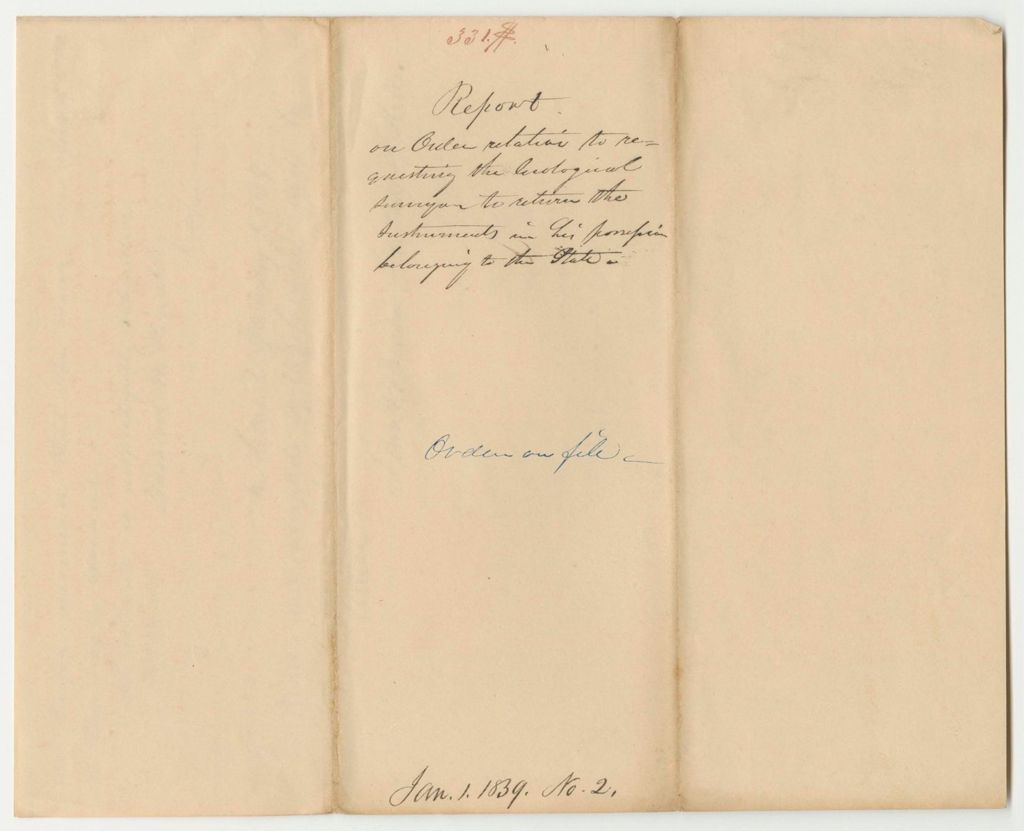 331.
Report.
on Order relative to re=
questing the Geological
surveyor to return the
Instruments in his possession
belonging to the State.
Order on file
Jan. 1. 1839. No. 2.